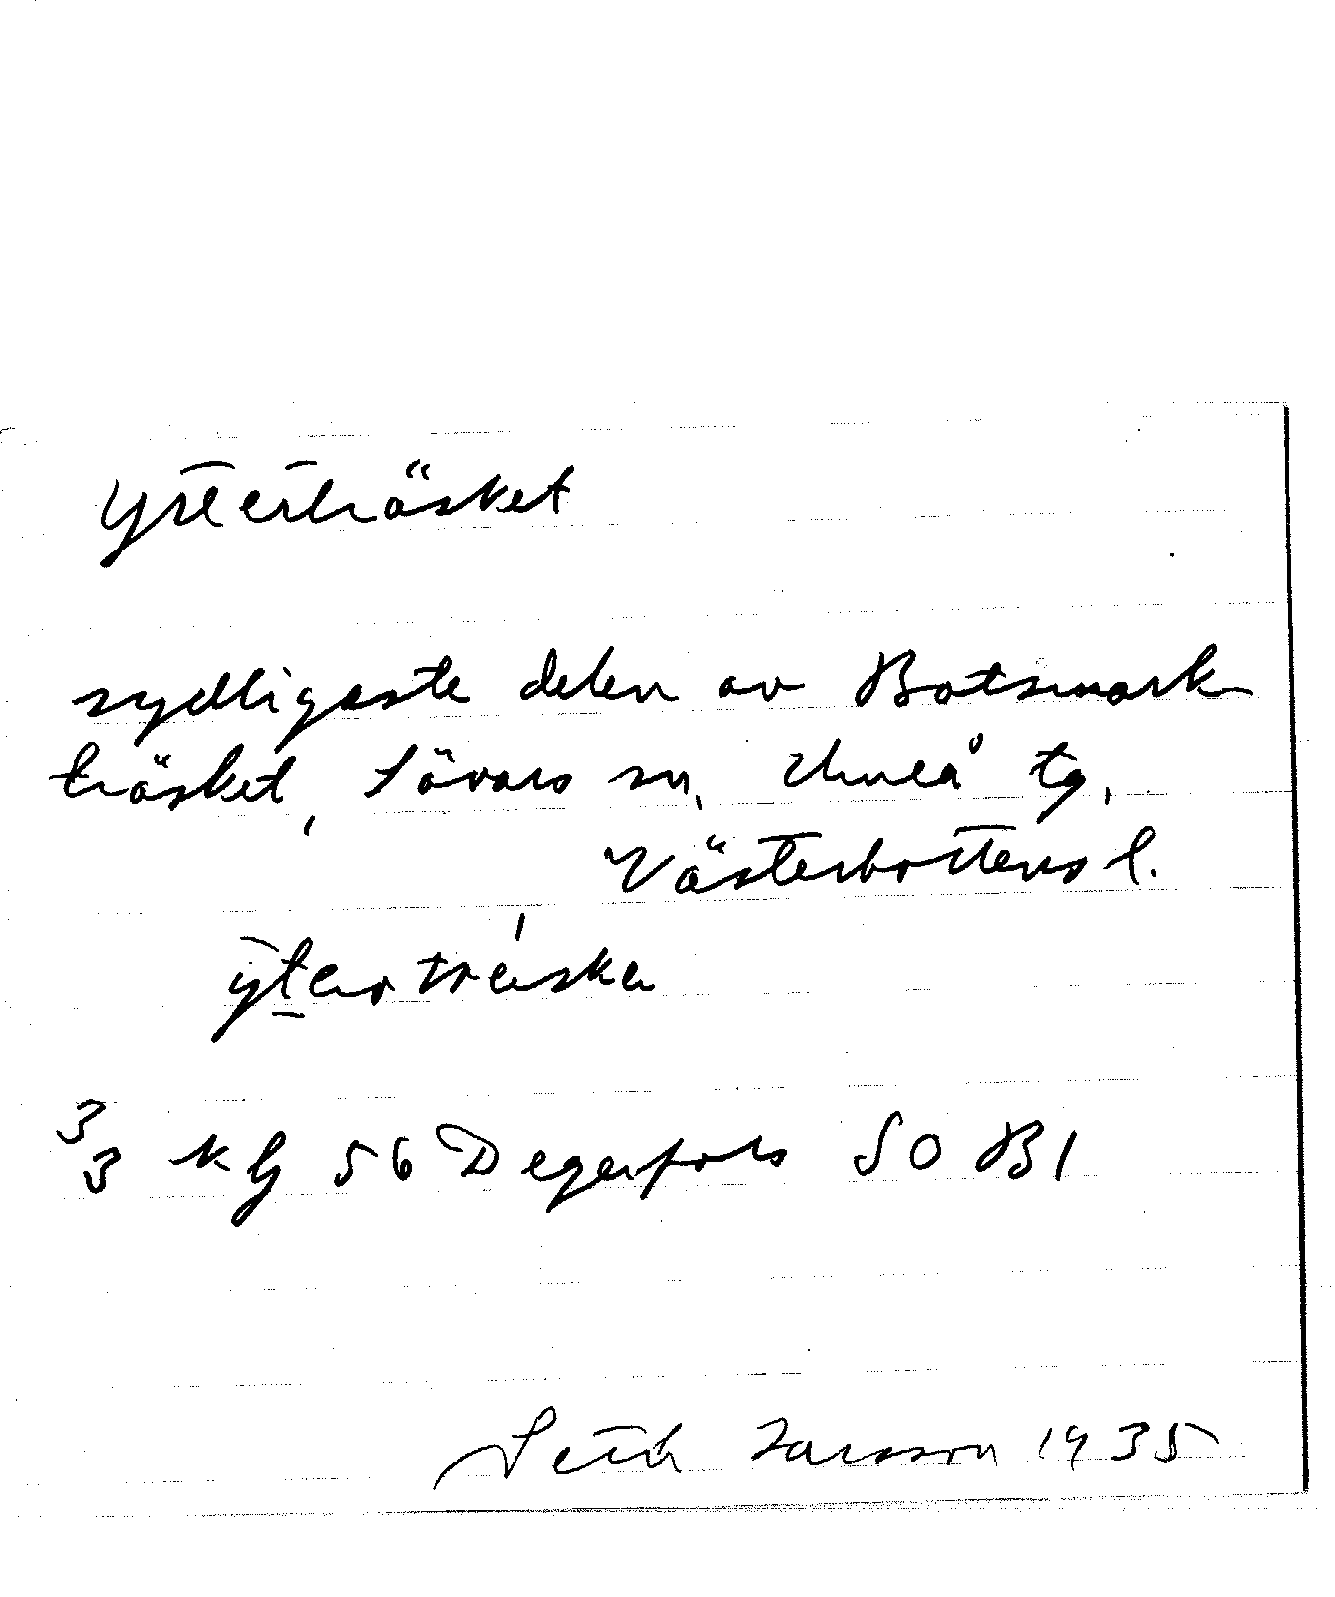 Ytterträsket
sydligaste delen av Botsmark
träsket, Sävars sn, Umeå tg,
Västerbottens l.
ytertreska
3
3 kg 56 Degerfors SO B1
Seth Larsson 1935